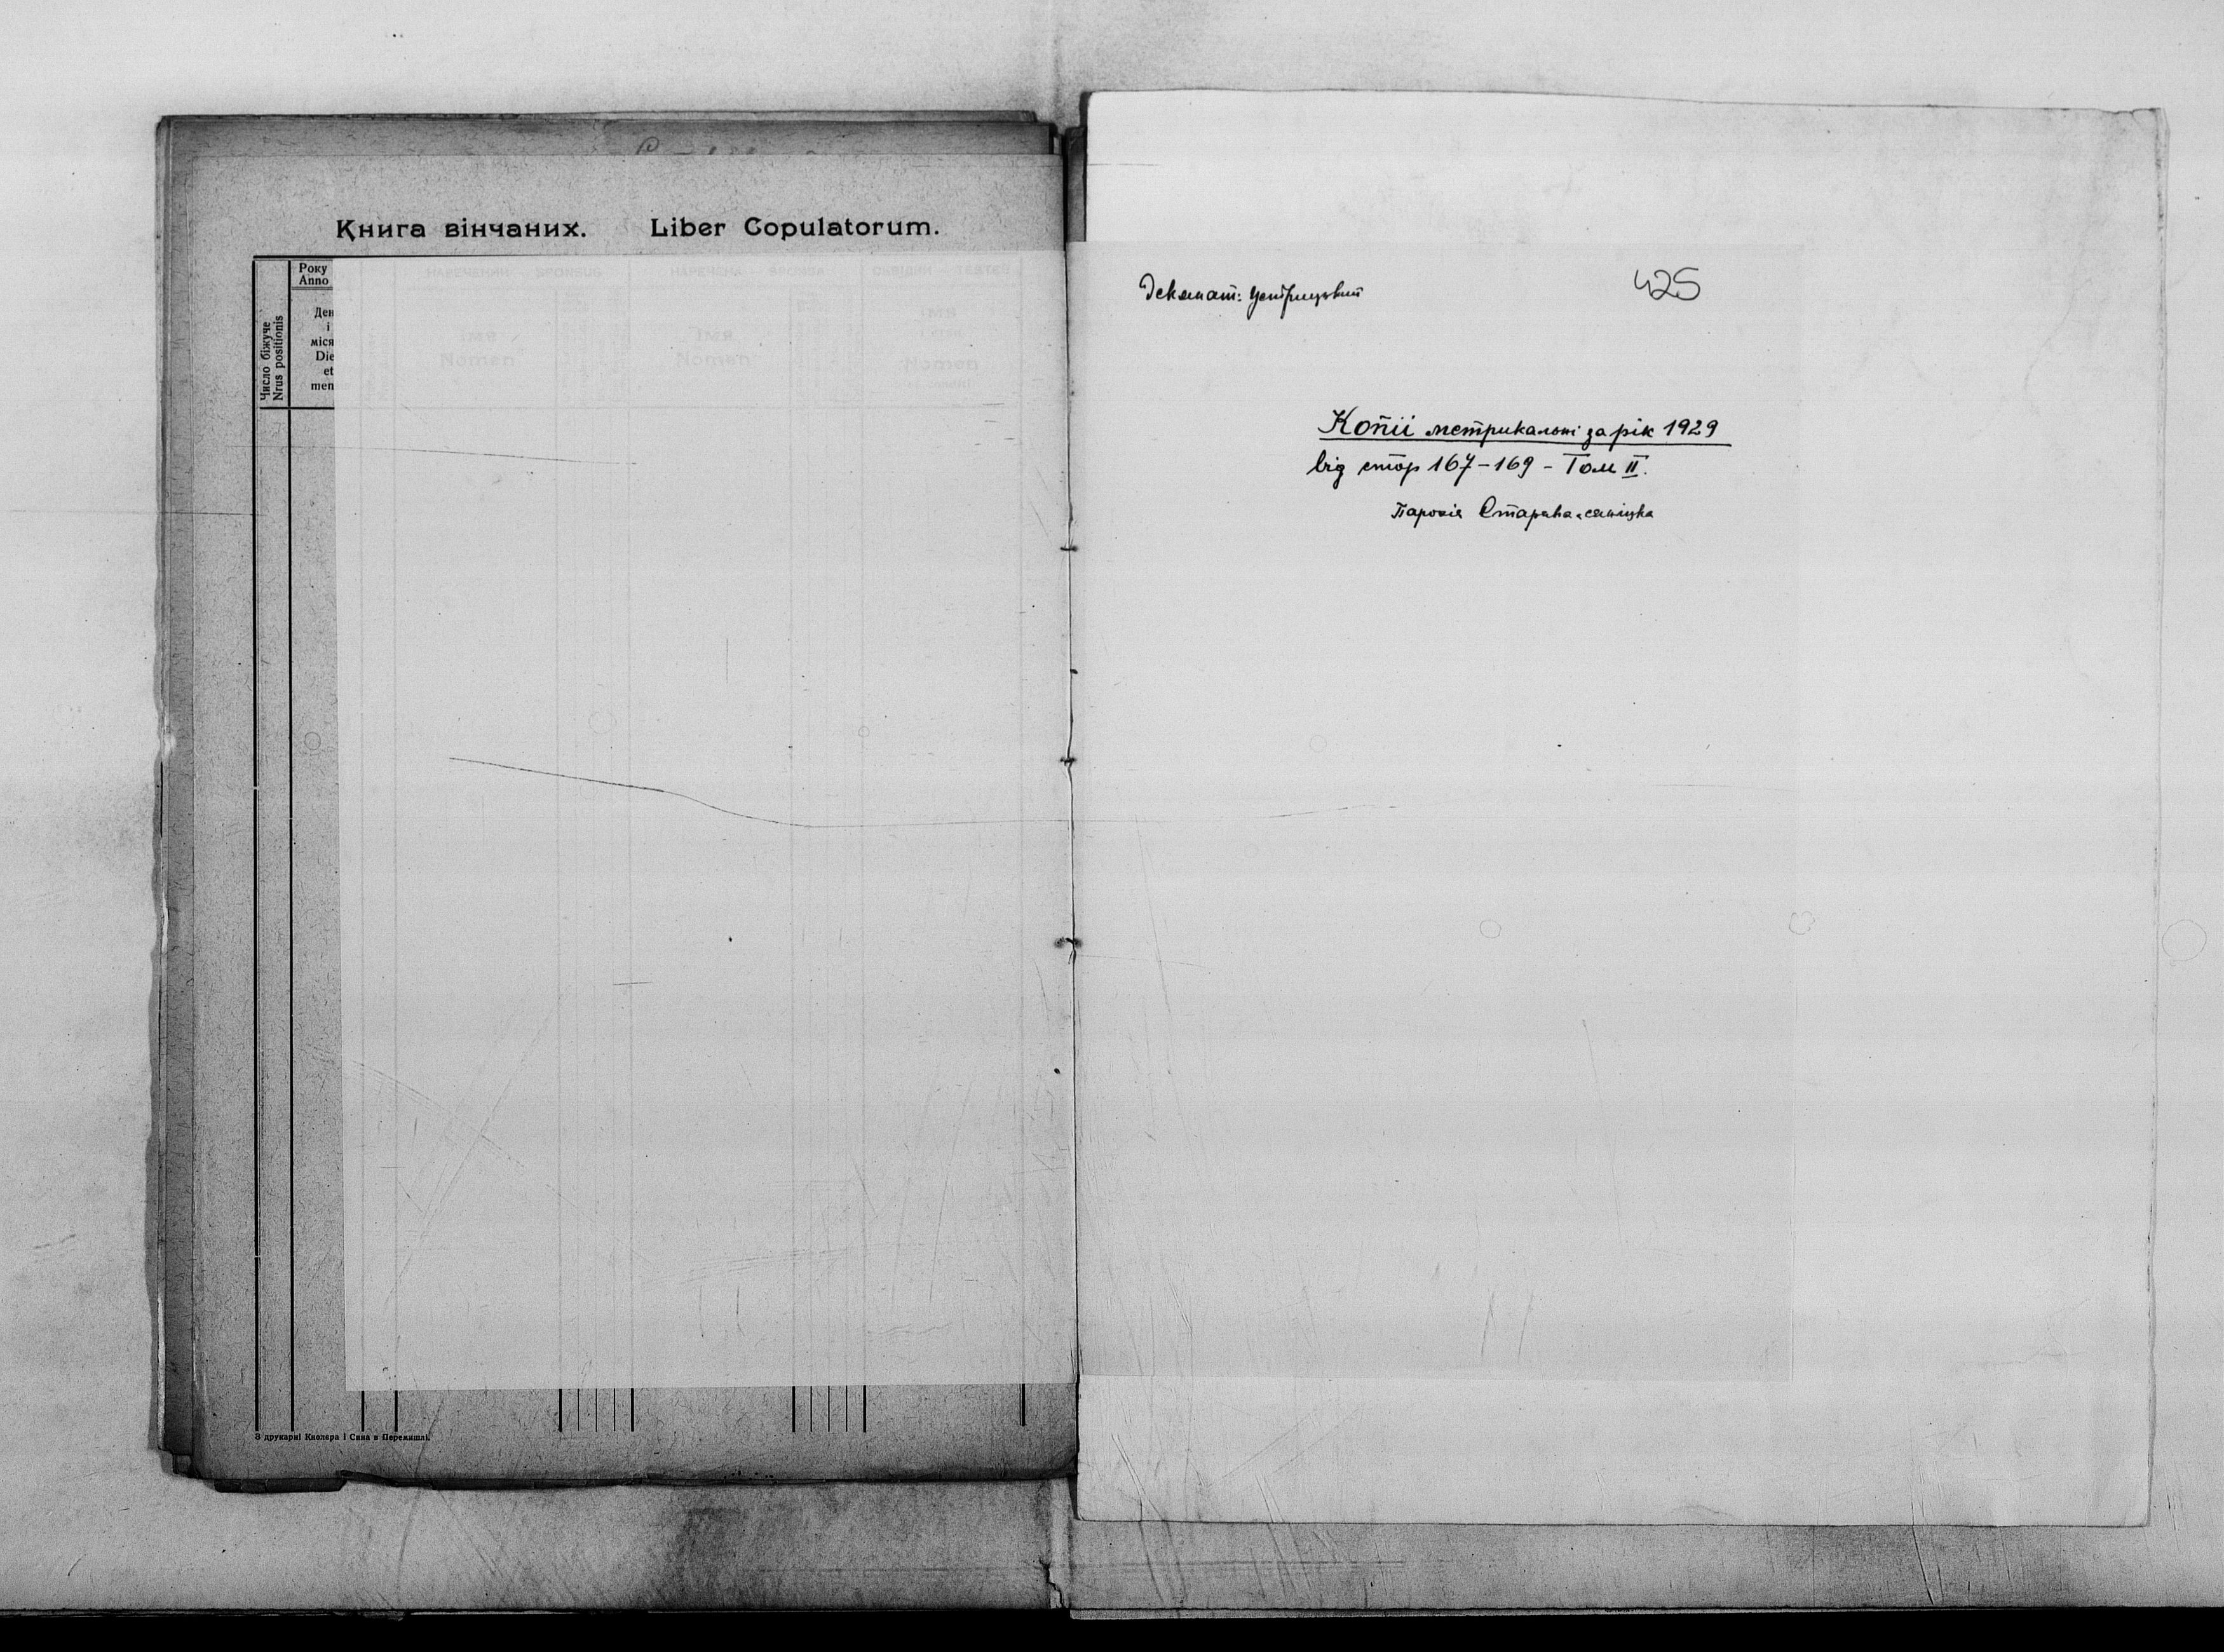 Книга вінчаних. Liber Copulatorum.
Число біжуче
Nrus positionis
Року
Anno
Ден
і
міся
Die
et
men
НАРЕЧЕНИЙ - SPONSUS
НАРЕЧЕНА - SPONSA
СЬВІДКИ - TESTES
ІМЯ
Nomen
ІМЯ
Nomen
ІМЯ
Nomen
З друкарні Кнолєра і Сина в Перемишлі.
Деканат: Устрицький
425
Копіі метрикальні за рік 1929
від стор 167-169 - Том II.
Парохія Старява